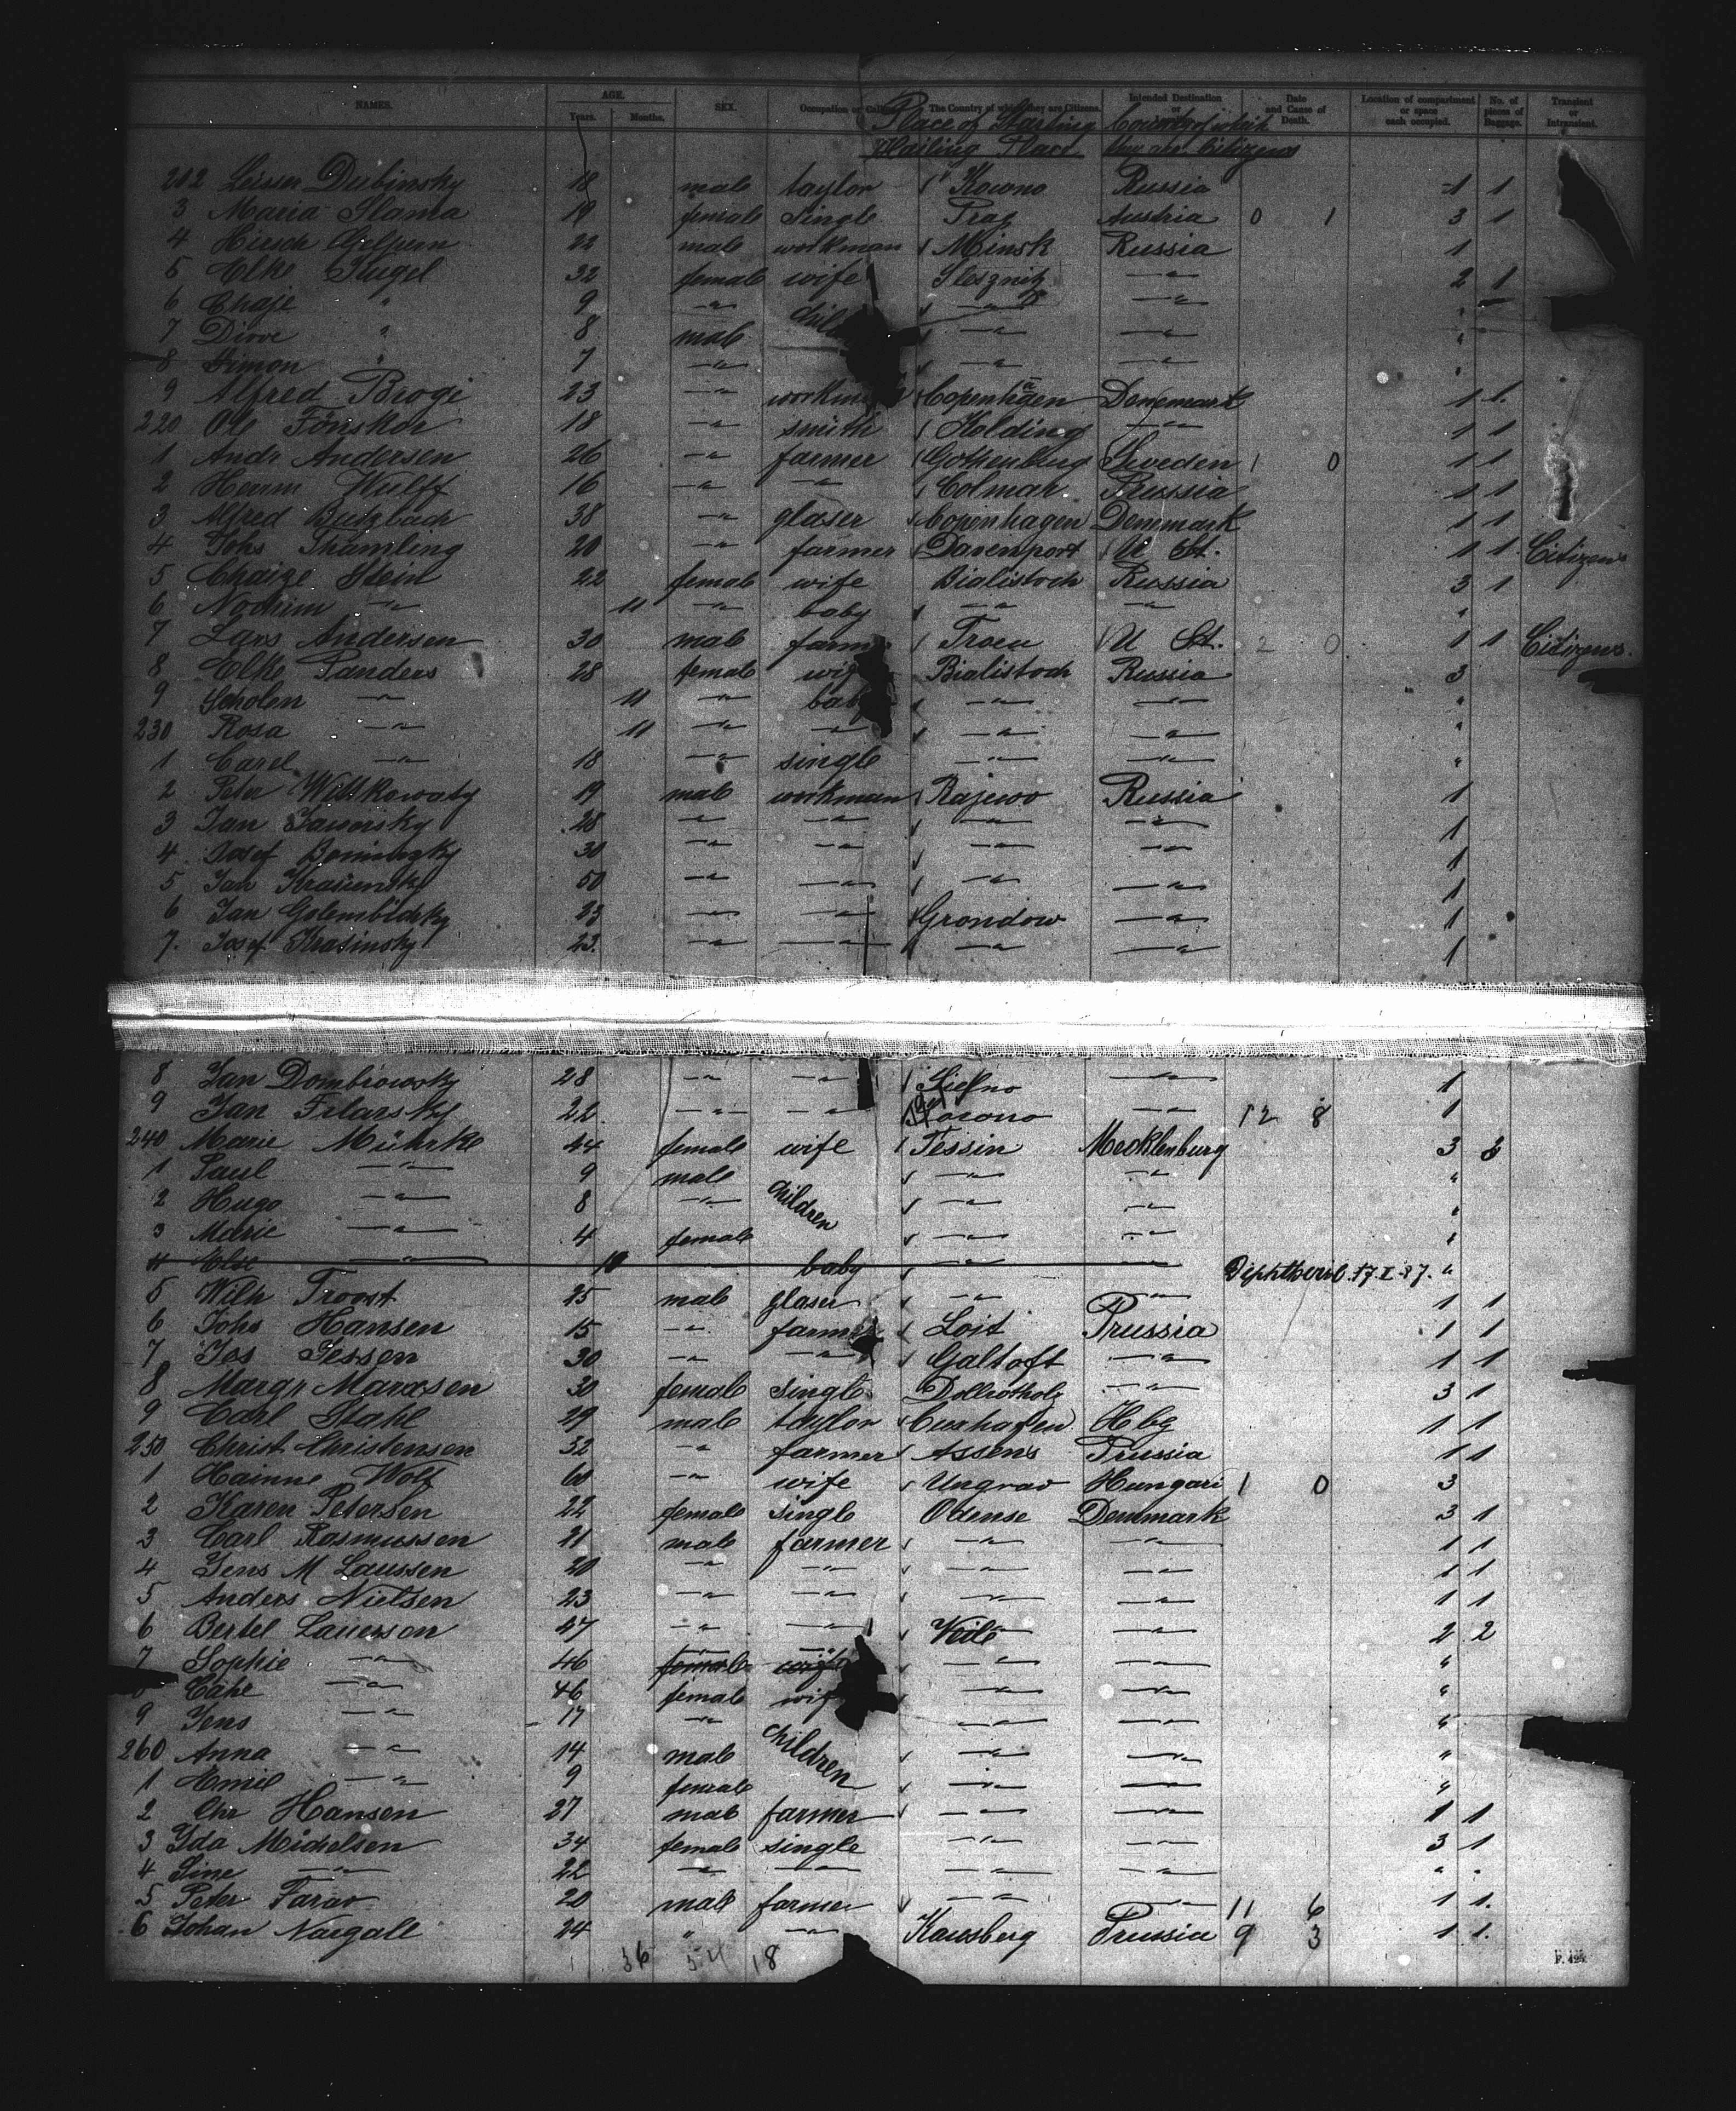 NAMES. AGE. Years. Months. SEX. Occupation or The Country of which they are Citizens. Intended Destination or Date and Cause of Death. Location of compartment or space each occupied. No. of pieces of Baggage. Transient or Intransient.
Place of Starting Country of which
Place they are Citizens
212 Leisser Dubinsky 18 male taylor Kowno Russia 1 1
3 Maria Slama 19 female single Prag Austria 0 1 3 1
4 Hirsch 22 male workman Minsk Russia 1
5 Elke 32 female wife —"— 2 1
6 Chaje " 9 —"— —"— —"— "
7 Dirve " 8 male —"— —"— "
8 Simon " 7 —"— —"— —"— "
9 Alfred Brogi 23 —"— Copenhagen Denemark 1 1
220 Ole Fönsker 18 —"— smith Kolding —"— 1 1
1 Andr Andersen 26 —"— farmer Gothenburg Sweden 1 0 1 1
2 Herm Wulff 16 —"— —"— Colmar Prussia 1 1
3 Alfred Butzbach 38 —"— glaser Copenhagen Denmark 1 1
4 Johs Thamling 20 —"— farmer Davenport U St. 1 1 Citizens
5 Chaize Stein 22 female wife Bialistoch Russia 3 1
6 Nochim —"— 11 —"— baby —"— —"— "
7 Lars Andersen 30 male farm U St. 2 0 1 1 Citizens.
8 Elke Panders 28 female wif Bialistoch Russia 3
9 Scholen —"— 11 —"— bab —"— —"— "
230 Rosa —"— 11 —"— —"— —"— —"— "
1 Carel —"— 18 —"— single —"— —"— "
2 Peter Wittkowsky 19 male workman Rajewo Russia 1
3 Jan Jaworsky 28 —"— —"— —"— —"— 1
4 Josef 30 —"— —"— —"— —"— 1
5 Jan Krasiensky 50 —"— —"— —"— —"— 1
6 Jan Golembidsky 23 —"— —"— Grondow —"— 1
7. Josef Krasinsky 23. —"— —"— —"— —"— 1
8 Jan Dombrowsky 28 —"— —"— —"— 1
9 Jan Filarsky 22 —"— —"— —"— 12 8 1
240 Marie Mührke 44 female wife Tessin Mecklenburg 3 3
1 Paul —"— 9 male —"— —"— "
2 Hugo —"— 8 —"— children —"— —"— "
3 Marie —"— 4 female —"— —"— "
4 Else —"— 10 baby —"— —"— 17.I.87. "
5 Wilh Troost 25 male glaser —"— —"— 1 1
6 Johs Hansen 15 —"— farme Loit Prussia 1 1
7 Jes Jessen 30 —"— —"— Galtoft —"— 1 1
8 Margr Marxsen 30 female single Dollrotholz —"— 3 1
9 Carl Stahl 29 male taylor Cuxhafen Hbg 1 1
250 Christ Christensen 32 —"— farmer Assens Prussia 1 1
1 Hainne Wolf 60 —"— wife Ungvar Hungari 1 0 3
2 Karen Petersen 22 female single Odense Denmark 3 1
3 Carl Rasmussen 21 male farmer —"— —"— 1 1
4 Jens M Laussen 20 —"— —"— —"— —"— 1 1
5 Anders Nielsen 23 —"— —"— —"— —"— 1 1
6 Bertel Lauerson 47 —"— —"— Veile —"— 2 2
7 Sophie —"— 46 female wife —"— —"— "
8 —"— 46 female wif —"— —"— "
9 Jens —"— 17 —"— —"— —"— "
260 Anna —"— 14 male children —"— —"— "
1 Emil —"— 9 female —"— —"— "
2 Chr Hansen 27 male farmer —"— —"— 1 1
3 Ida Michelsen 34 female single —"— —"— 3 1
4 Sine —"— 22 —"— —"— —"— —"— " "
5 Peter Farav 20 male farmer —"— —"— 11 6 1 1.
6 Johan Nargall 24 " —"— Kausberg Prussia 9 3 1 1.
36 54 18